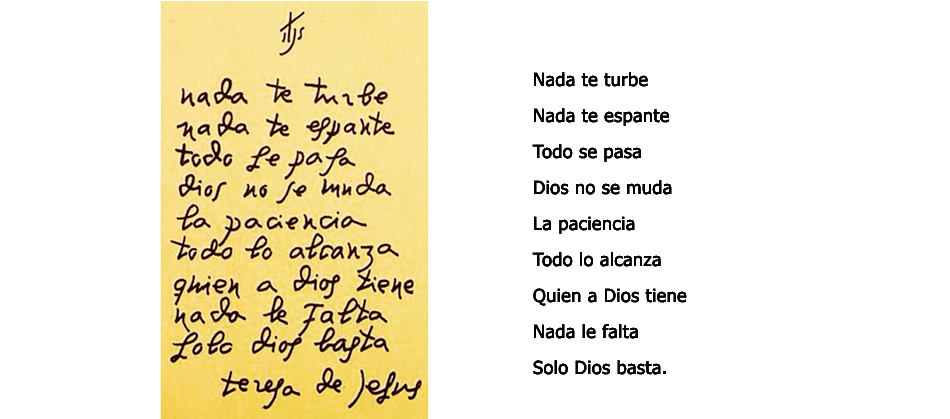 ihs
nada te turbe
nada te espante
todo se pasa
dios no se muda
la paciencia
todo lo alcanza
quien a dios tiene
nada le falta
solo dios basta
teresa de jesus
Nada te turbe
Nada te espante
Todo se pasa
Dios no se muda
La paciencia
Todo lo alcanza
Quien a Dios tiene
Nada le falta
Solo Dios basta.